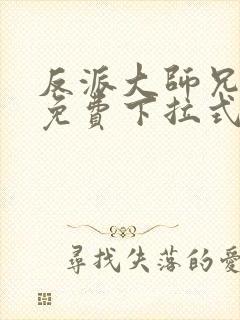 反派大師兄
免費下拉式
尋找失落的愛